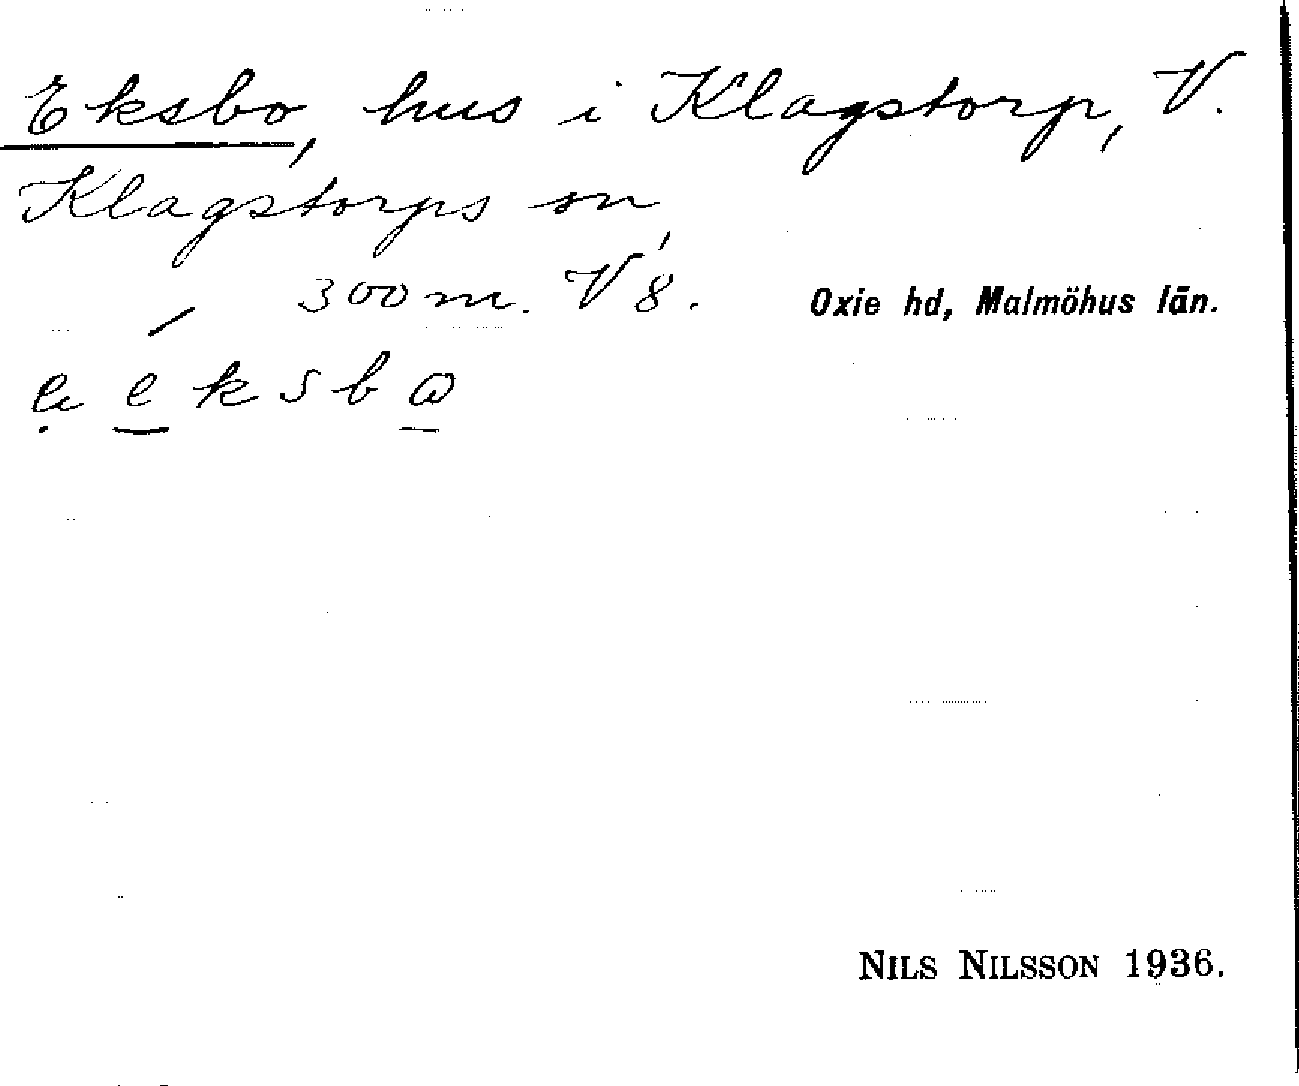 Eksbo, hus i Klagstorp, V.
Klagstorps sn,
300 m. V 8.
Oxie hd, Malmöhus län.
NILS NILSSON 1936.